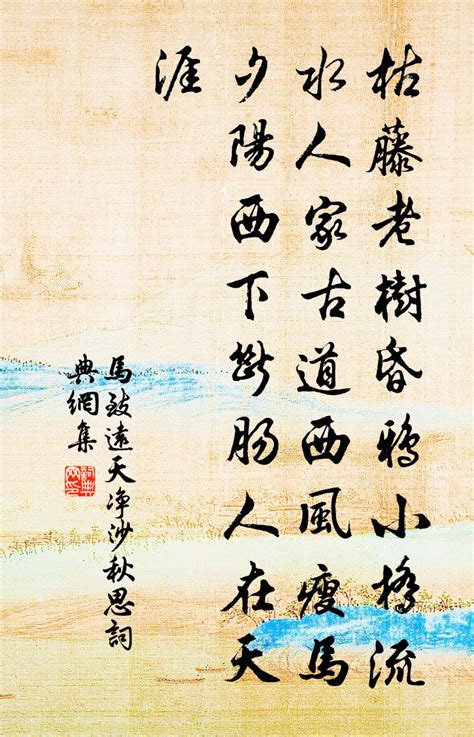 枯藤老樹昏鴉小橋流
水人家古道西風瘦馬
夕陽西下斷腸人在天
涯
馬致遠天净沙秋思詞
典網集